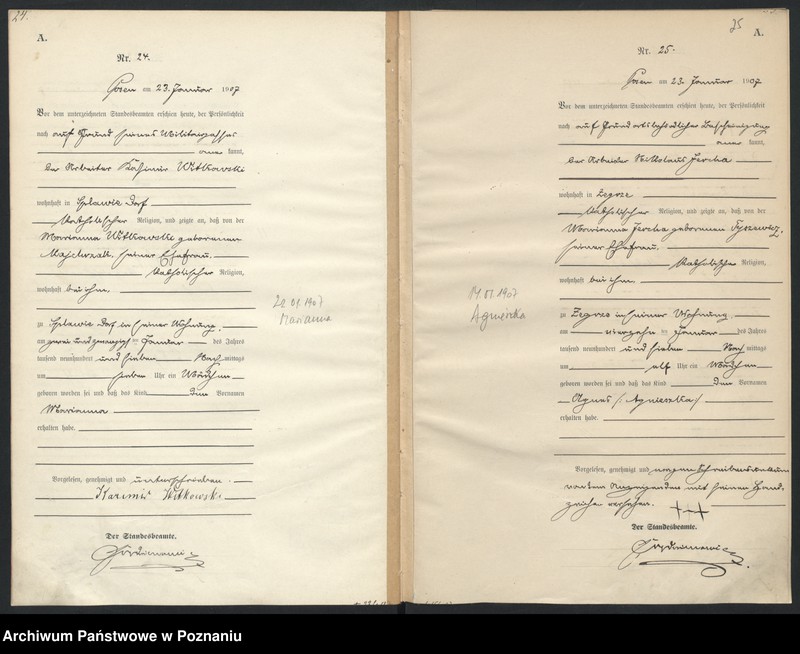 24.
A.
Nr. 24.
Posen am 23. Januar 1907
Vor dem unterzeichneten Standesbeamten erschien heute, der Persönlichkeit
nach auf Grund seines Militärpasses
kannt,
der Arbeiter Kasimir Witkowski
wohnhaft in Splawie Dorf
katholischer Religion, und zeigte an, daß von der
Marianna Witkowski geborenen
seiner Ehefrau,
katholischer Religion,
wohnhaft bei ihm,
zu Splawie Dorf in seiner Wohnung,
am zwei und zwanzigsten Januar des Jahres
tausend neunhundert und sieben Nachmittags
um sieben Uhr ein Mädchen
geboren worden sei und daß das Kind den Vornamen
Marianna
erhalten habe.
Vorgelesen, genehmigt und unterschrieben.
Kazimir Witkowski
Der Standesbeamte.
22.01.1907
Marianna
25
A.
Nr. 25.
Posen am 23. Januar 1907
Vor dem unterzeichneten Standesbeamten erschien heute, der Persönlichkeit
nach auf Grund ortsbehördlicher Bescheinigung
kannt,
der Arbeiter Nikolaus Jercha
wohnhaft in Zegrze
katholischer Religion, und zeigte an, daß von der
Marianna Jercha geborenen
seiner Ehefrau,
katholischer Religion,
wohnhaft bei ihm,
zu Zegrze in seiner Wohnung,
am vierzehn ten Januar des Jahres
tausend neunhundert und sieben Nachmittags
um elf Uhr ein Mädchen
geboren worden sei und daß das Kind den Vornamen
Agnes /: Agnieszka :/
erhalten habe.
Vorgelesen, genehmigt und wegen Schreibensunkunde
von dem Anzeigenden mit seinem Hand-
zeichen versehen. +++
Der Standesbeamte.
14.01.1907
Agnieszka
Archiwum Państwowe w Poznaniu